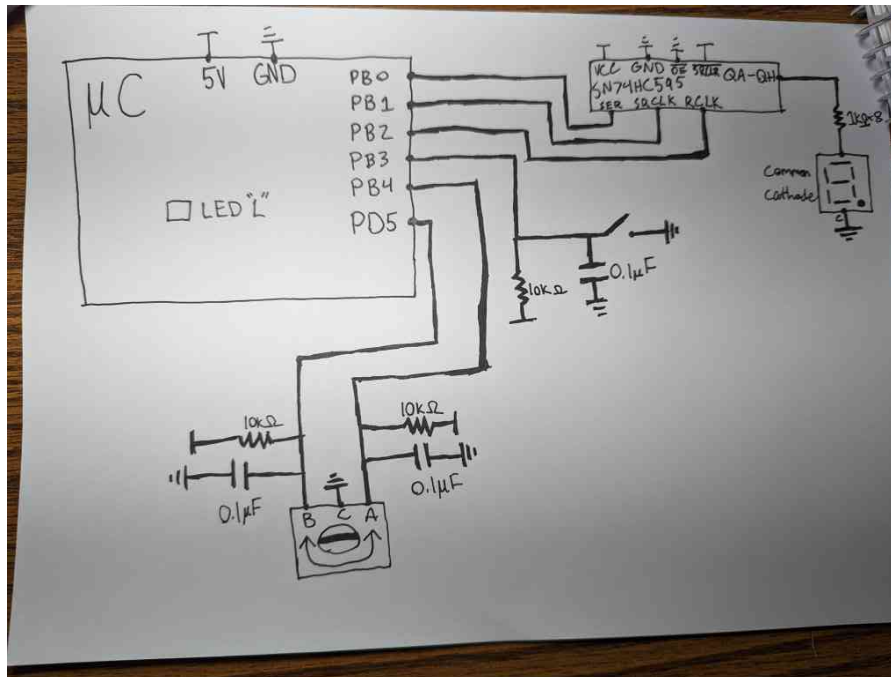 μC
5V GND
PB0
PB1
PB2
PB3
PB4
PD5
LED "L"
VCC GND OE SRCLR QA-QH
SN74HC595
SER SRCLK RCLK
1kΩ×8
Common
Cathode
C
10kΩ
0.1μF
10kΩ
0.1μF
10kΩ
0.1μF
B C A